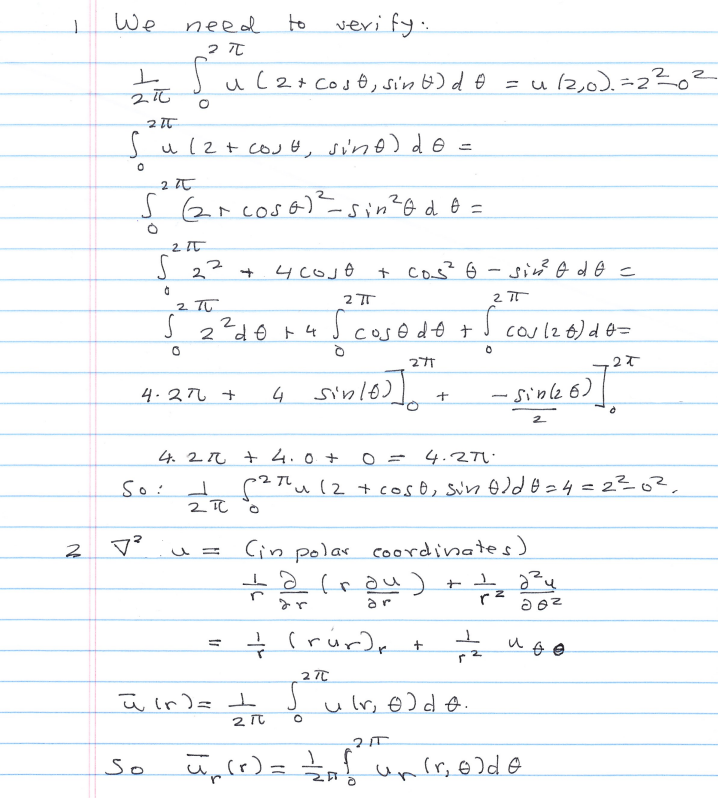 1 We need to verify:
1/2π ∫₀^2π u(2+cosθ, sinθ)dθ = u(2,0). = 2²-0²
∫₀^2π u(2+cosθ, sinθ)dθ =
∫₀^2π (2+cosθ)² - sin²θ dθ =
∫₀^2π 2² + 4cosθ + cos²θ - sin²θ dθ =
∫₀^2π 2²dθ + 4 ∫₀^2π cosθdθ + ∫₀^2π cos(2θ)dθ =
4·2π + 4 sin(θ)]₀^2π + -sin(2θ)/2]₀^2π
4·2π + 4·0 + 0 = 4·2π.
So: 1/2π ∫₀^2π u(2+cosθ, sinθ)dθ = 4 = 2²-0².
2 ∇² u = (in polar coordinates)
1/r ∂/∂r (r ∂u/∂r) + 1/r² ∂²u/∂θ²
= 1/r (rur)r + 1/r² uθθ
ū(r) = 1/2π ∫₀^2π u(r,θ)dθ.
So ūr(r) = 1/2π ∫₀^2π ur(r,θ)dθ